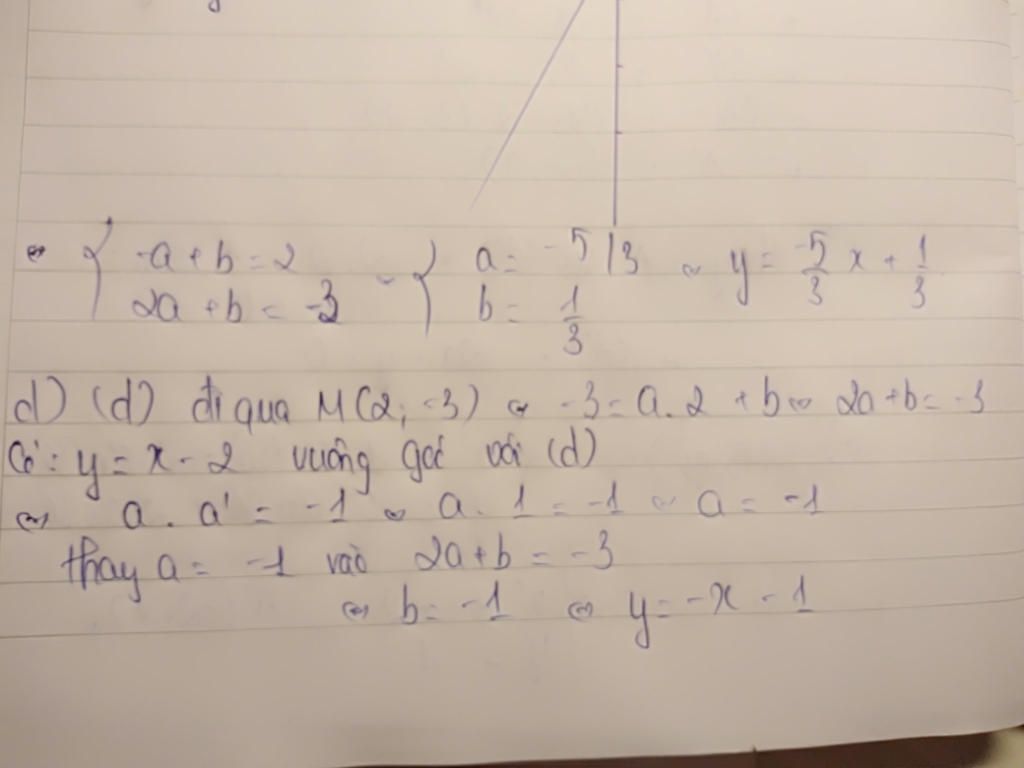 ⇔ { -a + b = 2 ⇔ { a = -5/3 ⇔ y = -5/3 x + 1/3
2a + b = -3 b = 1/3
d) (d) đi qua M(2; -3) ⇔ -3 = a.2 + b ⇔ 2a + b = -3
Có: y = x - 2 vuông góc với (d)
⇔ a . a' = -1 ⇔ a. 1 = -1 ⇔ a = -1
thay a = -1 vào 2a + b = -3
⇔ b = -1 ⇔ y = -x - 1